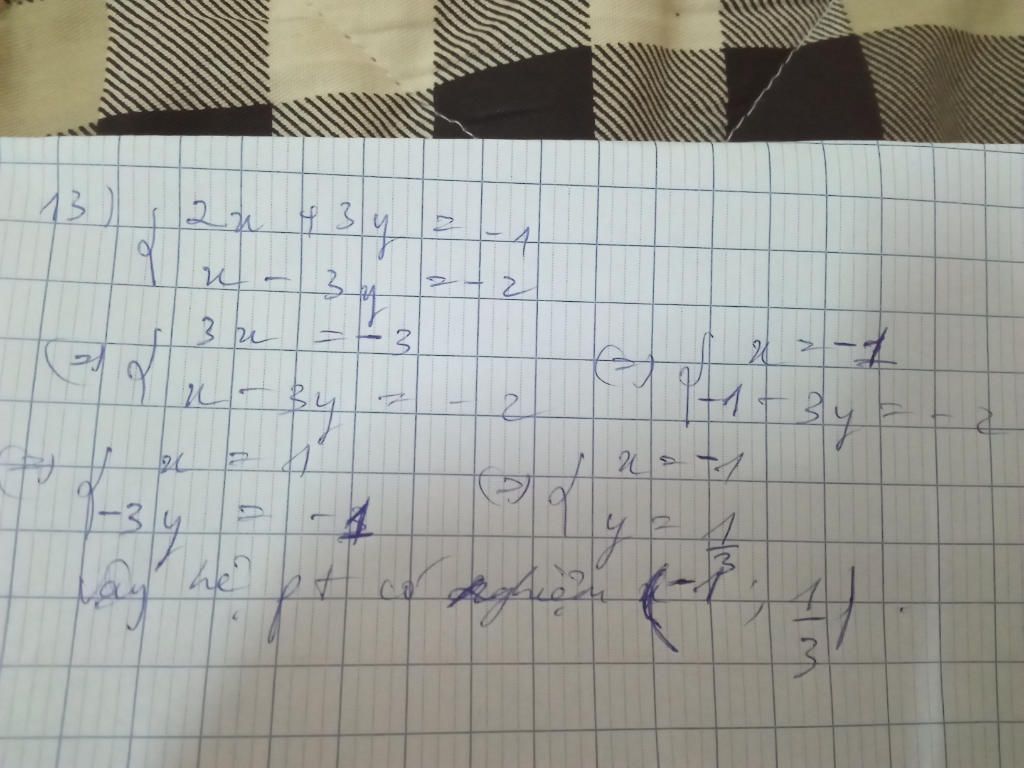 13) { 2x + 3y = -1
x - 3y = -2
(=) { 3x = -3 (=) { x = -1
x - 3y = -2 -1 - 3y = -2
(=) { x = 1 (=) { x = -1
-3y = -1 y = 1/3
Vậy hệ pt có nghiệm (-1; 1/3).